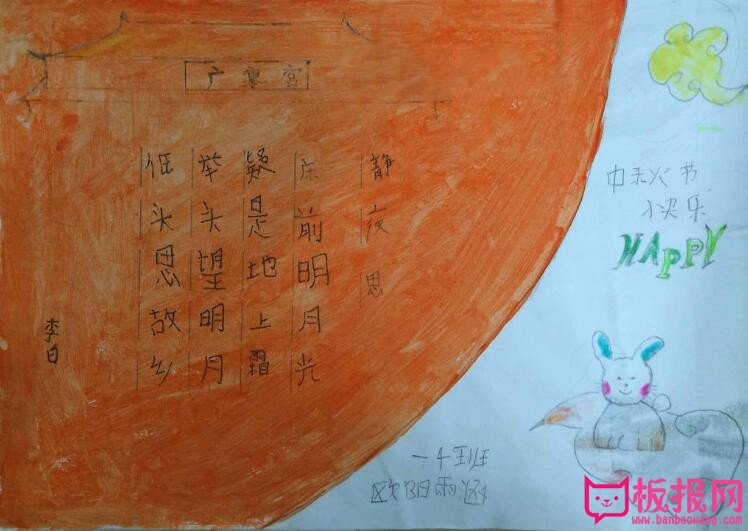 广寒宫
静夜思
床前明月光
疑是地上霜
举头望明月
低头思故乡
李白
中秋节
快乐
HAPPY
一4班
欧阳雨
板报网
www.banbaowang.com